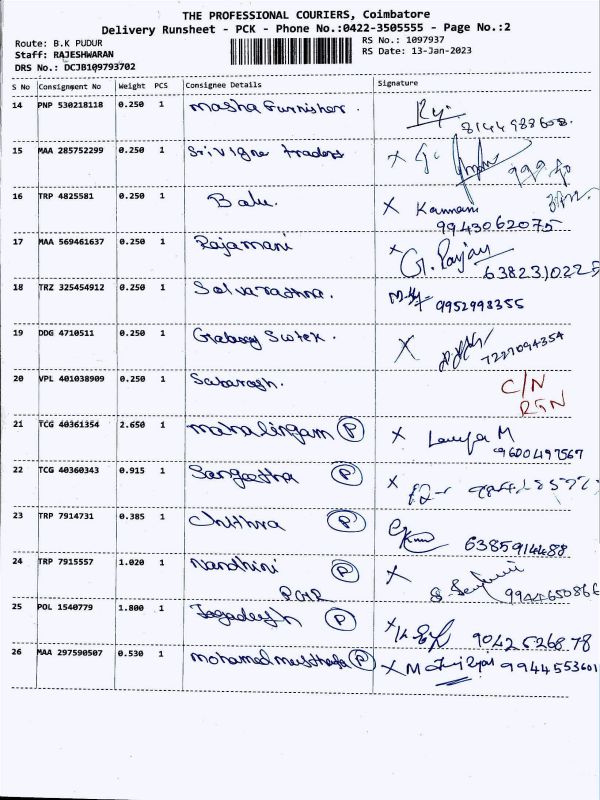 THE PROFESSIONAL COURIERS, Coimbatore
Delivery Runsheet - PCK - Phone No.:0422-3505555 - Page No.:2
Route: B.K PUDUR
RS No.: 1097937
Staff: RAJESHWARAN
RS Date: 13-Jan-2023
DRS No.: DCJB109793702
S No Consignment No Weight PCS Consignee Details Signature
14 PNP 530218118 0.250 1 Masha Furnisher.
8144988608
15 MAA 285752299 0.250 1 Sri Vigne traders
16 TRP 4825581 0.250 1 Balu. X Kannani
9943062075
17 MAA 569461637 0.250 1 Rajamani X G. Rajan
6382310225
18 TRZ 325454912 0.250 1 9952998355
19 DDG 4710511 0.250 1 X 7227094354
20 VPL 401038909 0.250 1 Sabarash. C/N
RTN
21 TCG 40361354 2.650 1 Mahalingam P X M
9600497567
22 TCG 40360343 0.915 1 Sangeetha P X
23 TRP 7914731 0.385 1 Chithra P
6385914488
24 TRP 7915557 1.020 1 Nandhini P X
9944650866
25 POL 1540779 1.800 1 Jagadeesh P X 9042526878
26 MAA 297590507 0.530 1 Mohamed Musthafa P X 9944553601